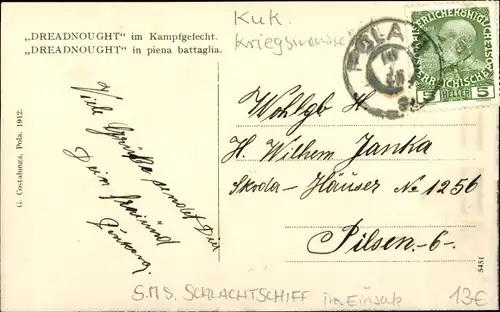 „DREADNOUGHT" im Kampfgefecht.
„DREADNOUGHT" in piena battaglia.
KuK.
Kriegsmarine
POLA
KAISERLICHE KÖNIGLICHE
ÖSTERREICHISCHE
5 HELLER 5
Viele Grüße sendet Dir
Dein Freund
G. Costalunga, Pola. 1912.
Wohlgb H.
H. Wilhem Janka
Skoda-Häuser № 1256
Pilsen-6-
5451
S.M.S. SCHLACHTSCHIFF im Einsatz 13€